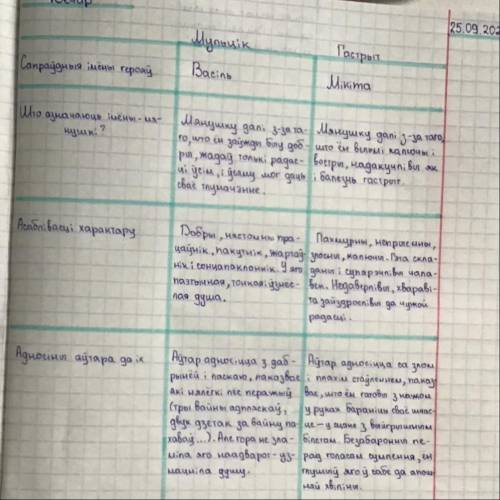 25.09.202
Мульцік
Гастрыт
Сапраўдныя імёны герояў
Васіль
Мікіта
Што азначаюць імёны-мя-
нушкі?
Мянушку далі з-за та-
го, што ён заўжды быў доб-
ры, жадаў толькі радас-
ці ўсім, і ўсяму мог даць
сваё тлумачэнне.
Мянушку далі з-за таго,
што ён вельмі калючы і
востры, надакучлівы як
і балець гастрыт.
Асаблівасці характару
Добры, нястомны пра-
цаўнік, пакутнік, жартаў-
нік і сонцапаклоннік. У яго
паэтычная, тонкая і ўзнёс-
лая душа.
Пахмурны, непрыемны,
злосны, калючы. Гэта скла-
даны і супярэчлівы чала-
век. Недаверлівы, хваравi-
та зайздрослівы да чужой
радасці.
Адносіны аўтара да іх
Аўтар адносіцца з даб-
рынёй і ласкаю, паказвае
які нялёгкі лёс перажыў
(тры вайны адпласкаў,
двух дзетак за вайну па-
хаваў...). Але гора не зла-
міла яго наадварот-уз-
мацніла душу.
Аўтар адносіцца са злом
і плахім стаўленнем, паказ
вае, што ён гатовы з нажом
у руках бараніць сваё шчас-
це - у шапе з выйгрышным
білетам. Безабаронны пе-
рад голасам сумлення, ён
глушыў яго ў сабе да апош-
няй хвіліны.